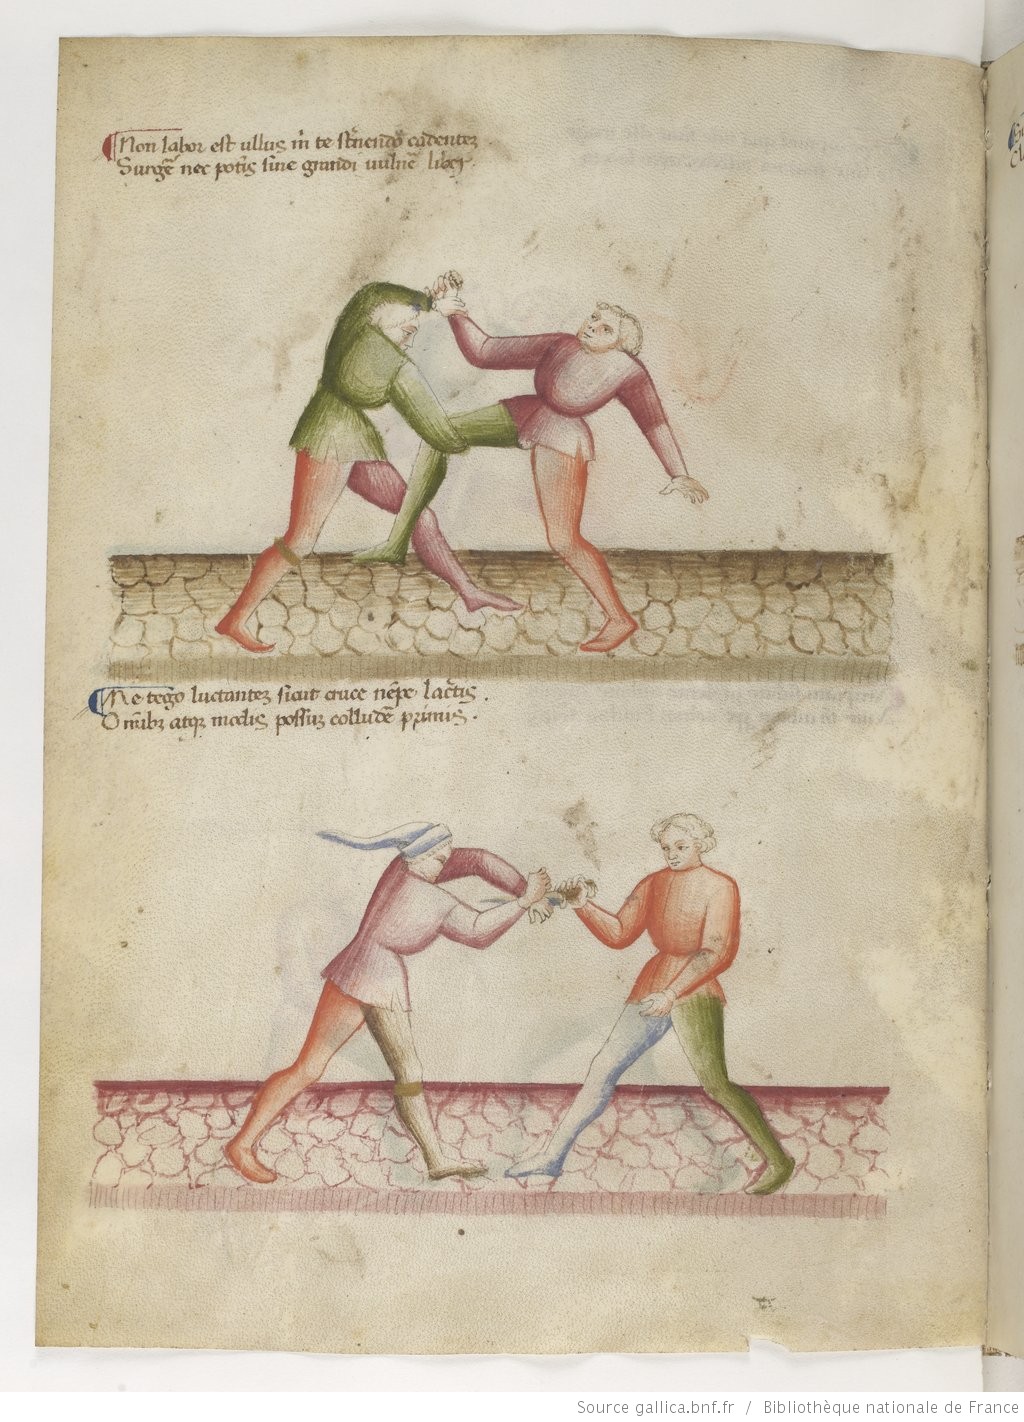 Non labor est ullus m̄ te st̄nendo cadentez
Surgē nec potis sine grandi uulnē
Me tego luctantez sicut cruce nēpe lac̄tis .
Om̄ibz atqz modis possuz colludē primus .
Source gallica.bnf.fr / Bibliothèque nationale de France